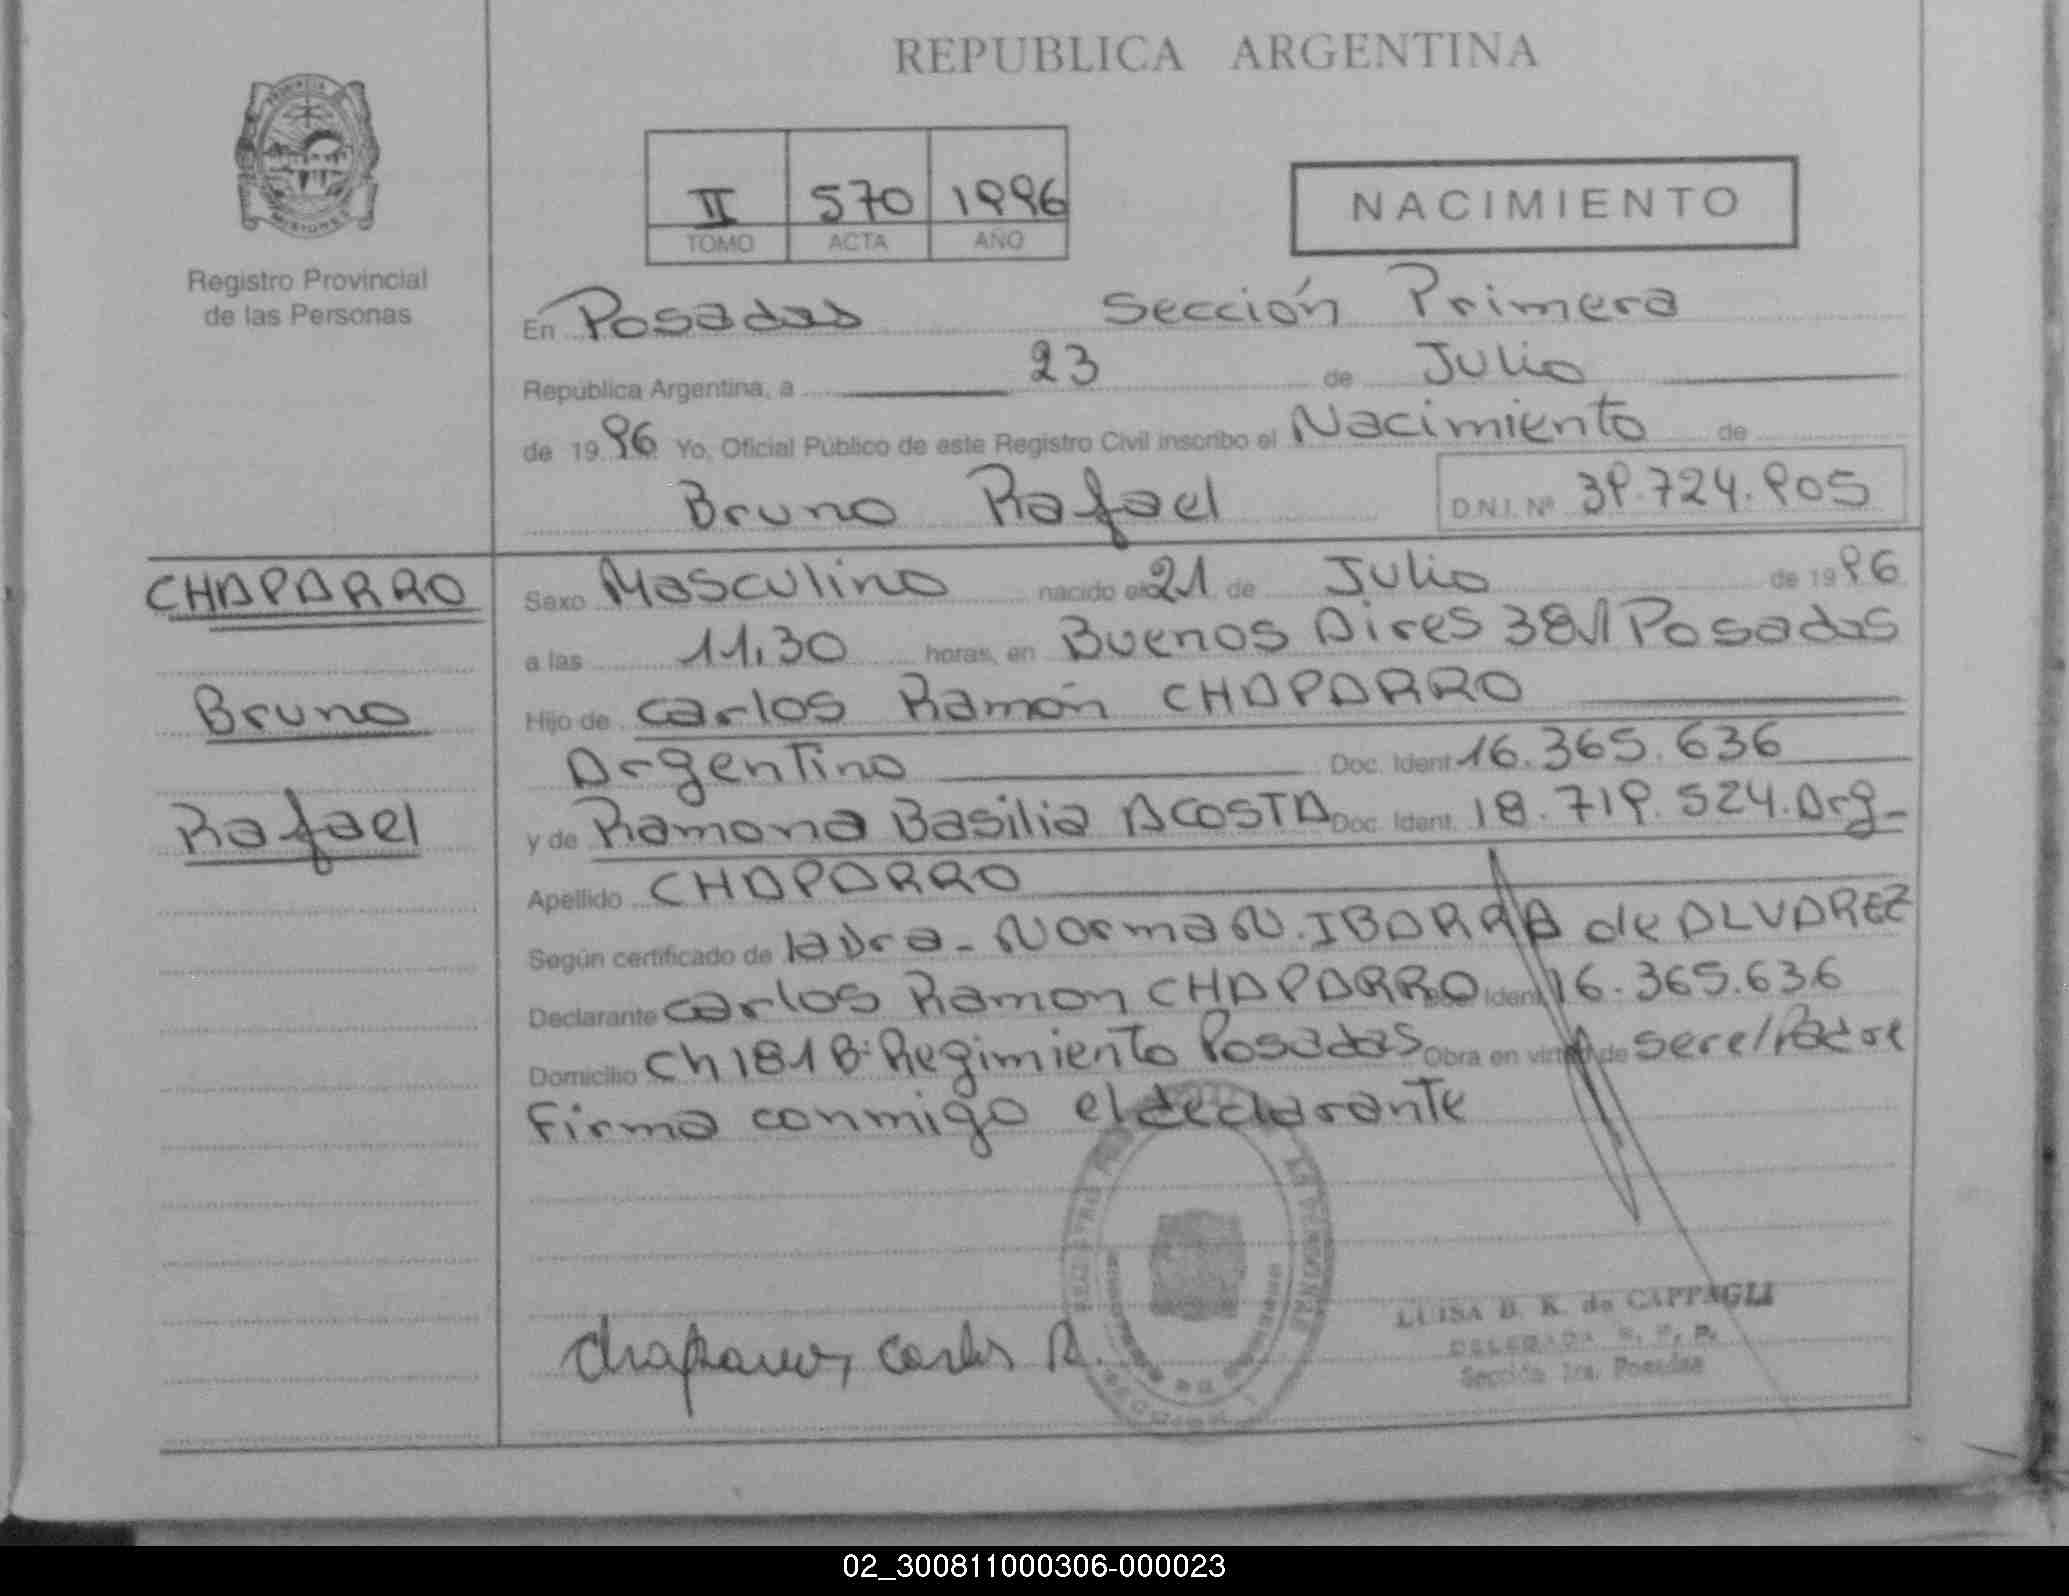 REPUBLICA ARGENTINA
PROVINCIA
MISIONES
Registro Provincial
de las Personas
II 570 1996
TOMO ACTA AÑO
NACIMIENTO
En Posadas Sección Primera
República Argentina, a 23 de Julio
de 1996 Yo, Oficial Público de este Registro Civil inscribo el Nacimiento de
Bruno Rafael D.N.I. Nº 39.724.905
CHAPARRO
Bruno
Rafael
Sexo Masculino nacido el 21 de Julio de 1996
a las 11,30 horas, en Buenos Aires 381 Posadas
Hijo de Carlos Ramón CHAPARRO
Argentino Doc. Ident. 16.365.636
y de Ramona Basilia ACOSTA Doc. Ident. 18.719.524. Arg-
Apellido CHAPARRO
Según certificado de la Dra- Norma N. IBARRA de ALVAREZ
Declarante Carlos Ramon CHAPARRO Ident. 16.365.636
Domicilio Ch 181 B: Regimiento Posadas Obra en virtud de ser el Padre
Firma conmigo el declarante
Chaparro, Carlos R.
LUISA B. K. de CAPPAGLI
DELEGADA R. P. P.
Sección 1ra. Posadas
02_300811000306-000023